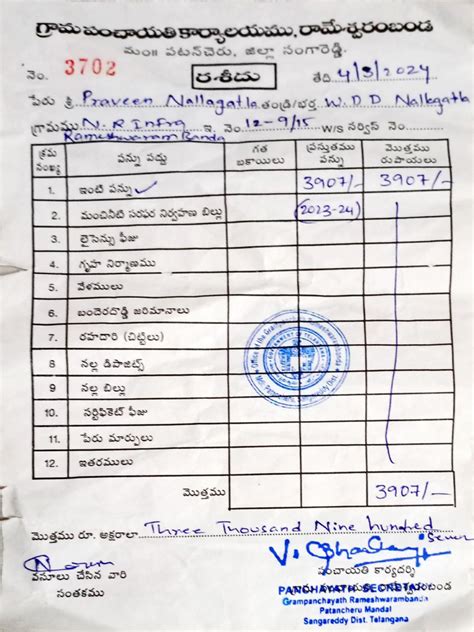 గ్రామ పంచాయతి కార్యాలయము, రామేశ్వరంబండ
మం॥ పటన్‌చెరు, జిల్లా సంగారెడ్డి.
నెం. 3702 రశీదు తేది 4/3/2024
పేరు శ్రీ Praveen Nallagatla తండ్రి/భర్త W.D.D Nallagatla
గ్రామము N.R Infra ఇ. నెం 12-9/15 W/S సర్వీస్ నెం.
Rameshwaram Banda
క్రమ సంఖ్య పన్ను పద్దు గత బకాయిలు ప్రస్తుతము పన్ను మొత్తము రుపాయలు
1. ఇంటి పన్ను ✓ 3907/- 3907/-
2. మంచినీటి సరఫర నిర్వహణ బిల్లు (2023-24)
3. లైసెన్సు ఫీజు
4. గృహ నిర్మాణము
5. వేళములు
6. బంచెరదొడ్డి జరిమానాలు
7. రహదారి (చిట్టిలు)
8 నల్ల డిపాజిట్స్
9 నల్ల బిల్లు
10. సర్టిఫికెట్ ఫీజు
11. పేరు మార్పులు
12. ఇతరములు
మొత్తము 3907/-
మొత్తము రూ. అక్షరాలా Three Thousand Nine hundred
Seven
వసూలు చేసిన వారి
సంతకము
పంచాయతి కార్యదర్శి
PANCHAYATH SECRETARY
Grampanchayath Rameshwarambanda
Patancheru Mandal
Sangareddy Dist. Telangana